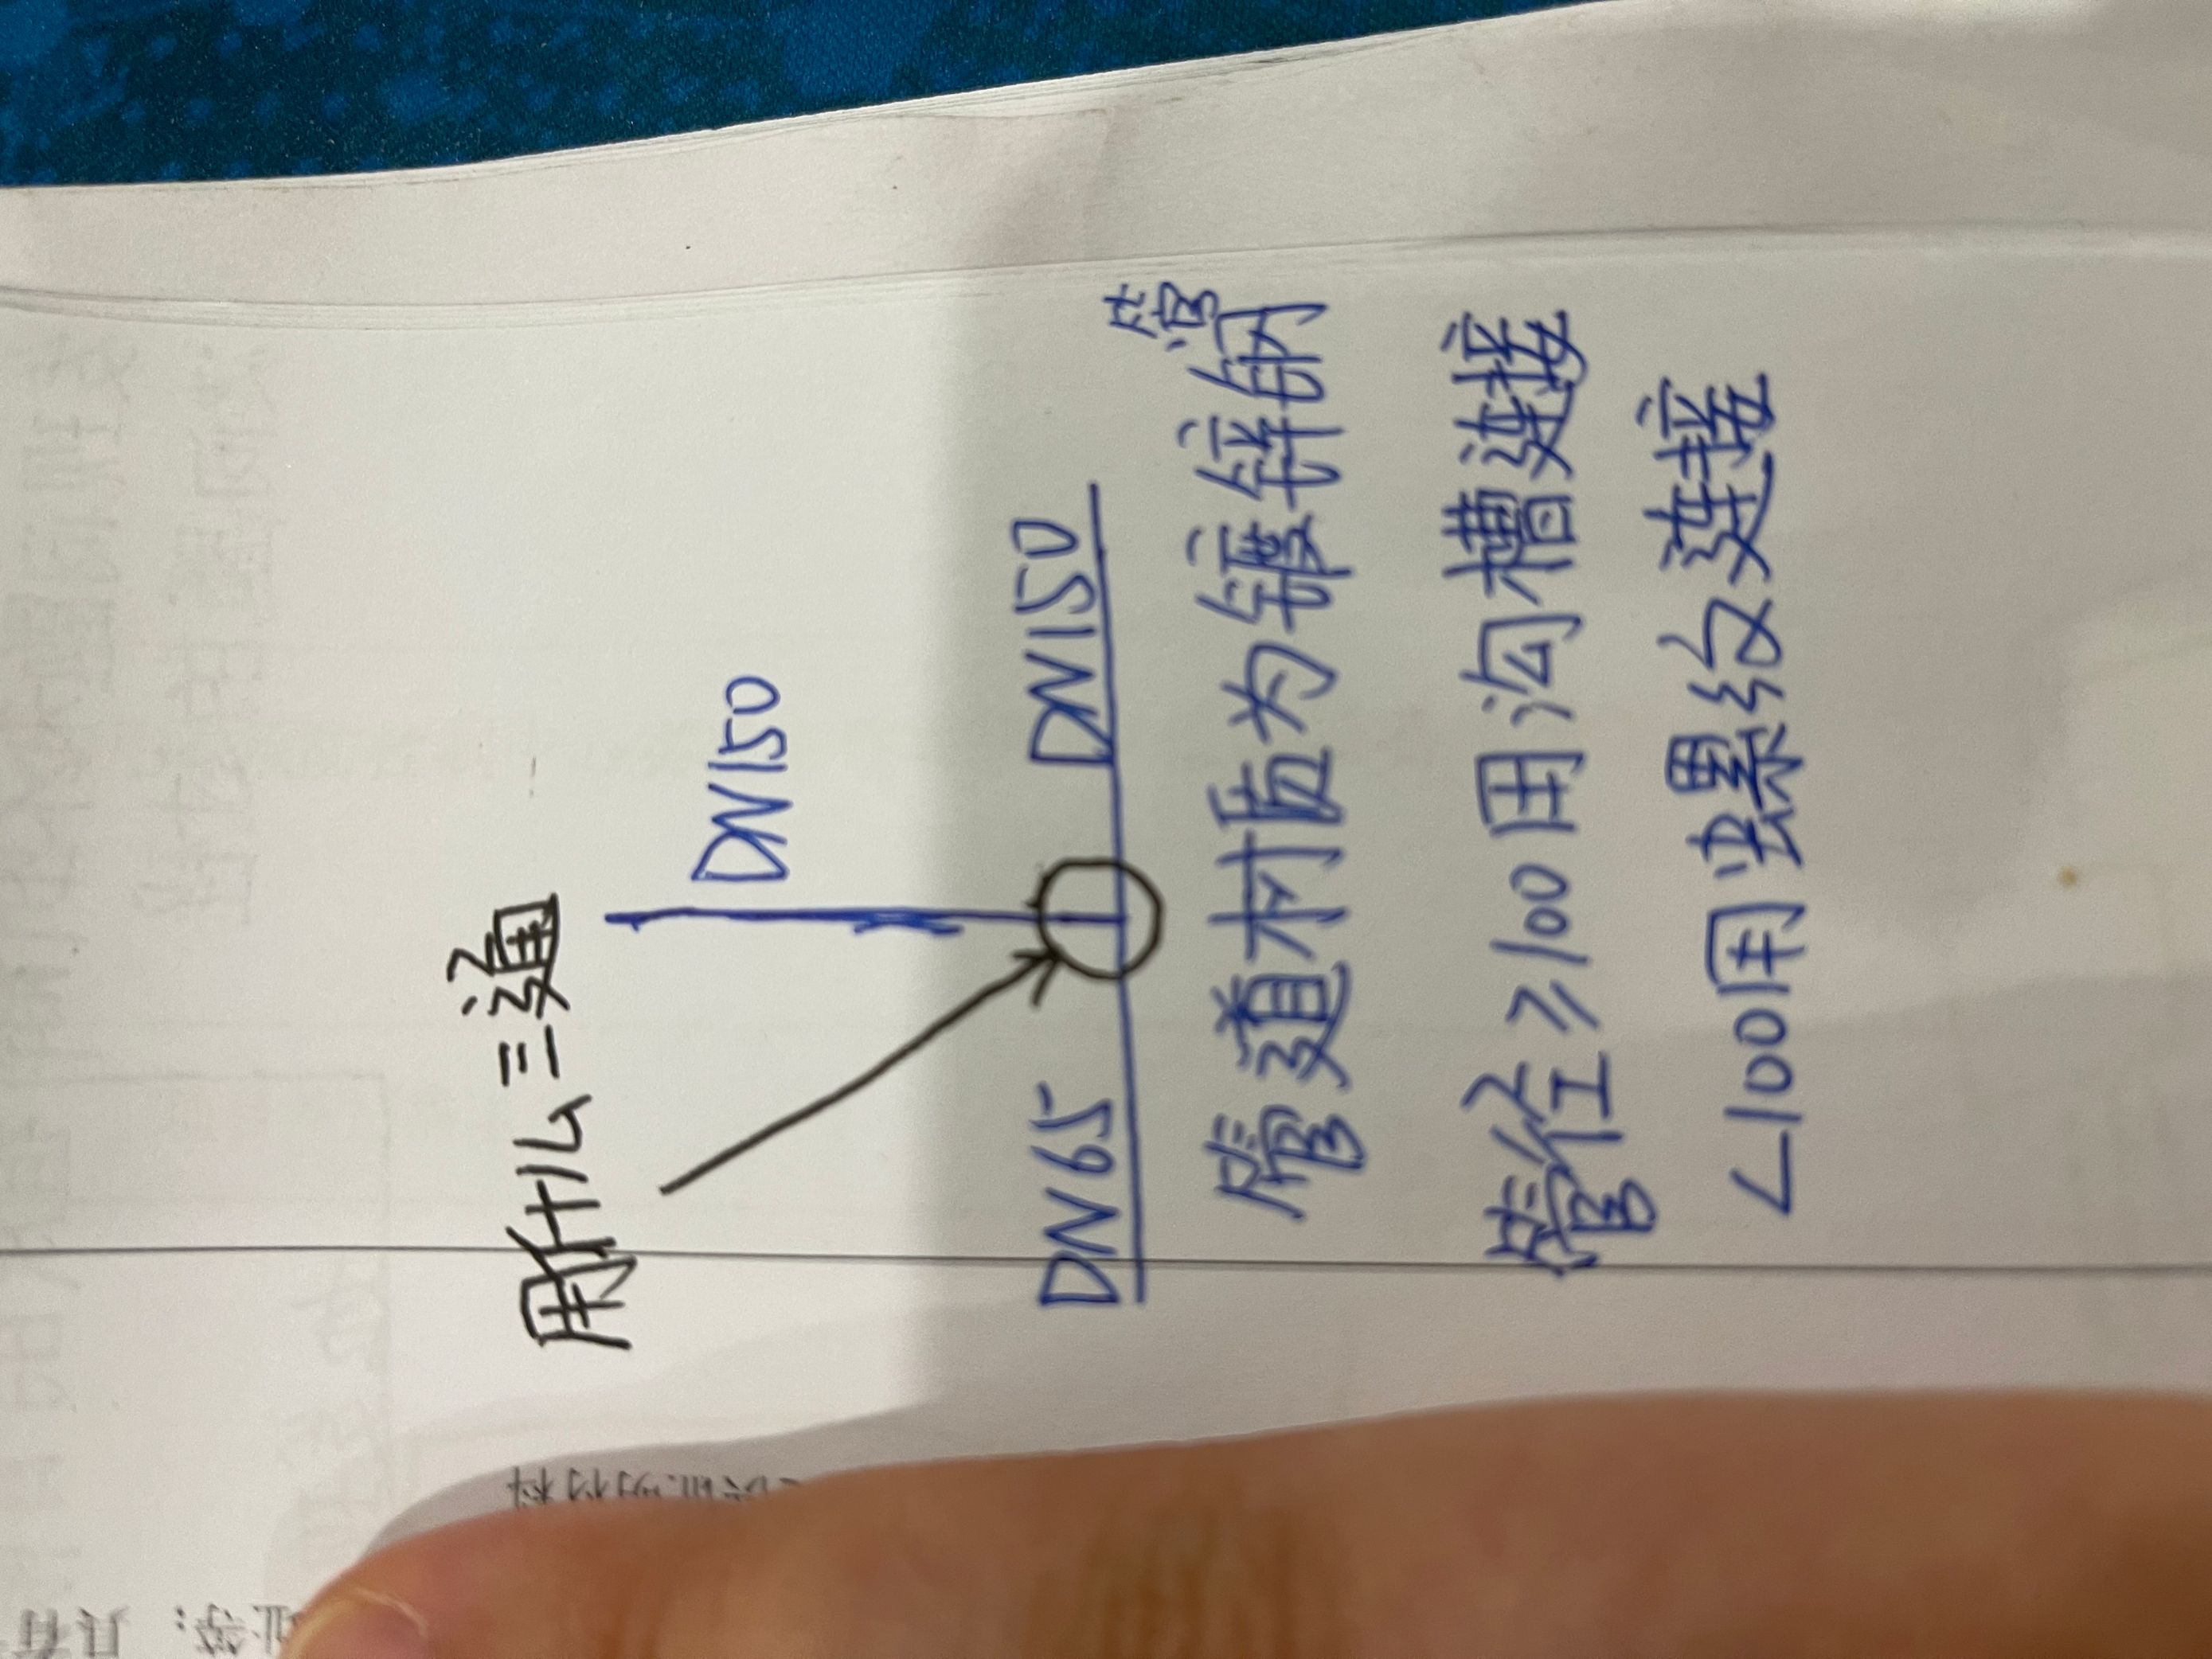 用什么三通
DN150
DN65 DN150
管道材质为镀锌钢管
管径≥100用沟槽连接
<100用螺纹连接